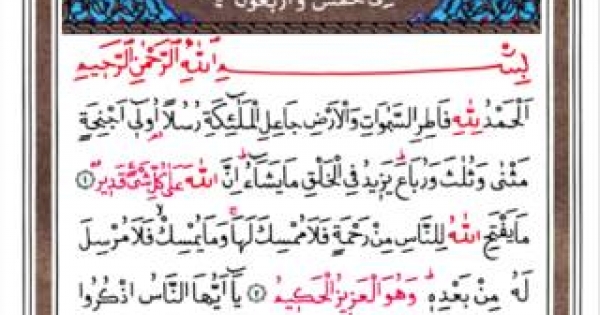 خمس واربعون
بِسْمِ اللّٰهِ الرَّحْمٰنِ الرَّحِيمِ
اَلْحَمْدُ لِلّٰهِ فَاطِرِ السَّمٰوَاتِ وَالْاَرْضِ جَاعِلِ الْمَلٰٓئِكَةِ رُسُلًا اُو۬لٓى اَجْنِحَةٍ
مَثْنٰى وَثُلٰثَ وَرُبَاعَۜ يَزِيدُ فِى الْخَلْقِ مَا يَشَٓاءُۜ اِنَّ اللّٰهَ عَلٰى كُلِّ شَىْءٍ قَدِيرٌ ﴿١﴾
مَا يَفْتَحِ اللّٰهُ لِلنَّاسِ مِنْ رَحْمَةٍ فَلَا مُمْسِكَ لَهَاۚ وَمَا يُمْسِكْۙ فَلَا مُرْسِلَ
لَهُ مِنْ بَعْدِهٖۜ وَهُوَ الْعَزِيزُ الْحَكِيمُ ﴿٢﴾ يَٓا اَيُّهَا النَّاسُ اذْكُرُوا